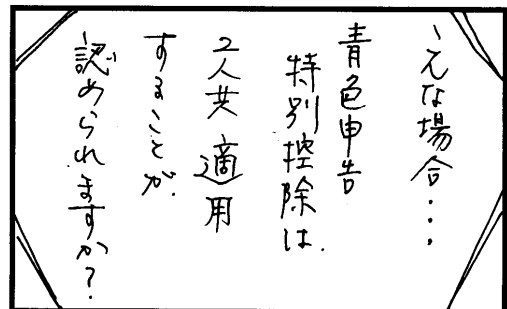 こんな場合・・・
青色申告
特別控除は.
2人共適用
することが.
認められますか?